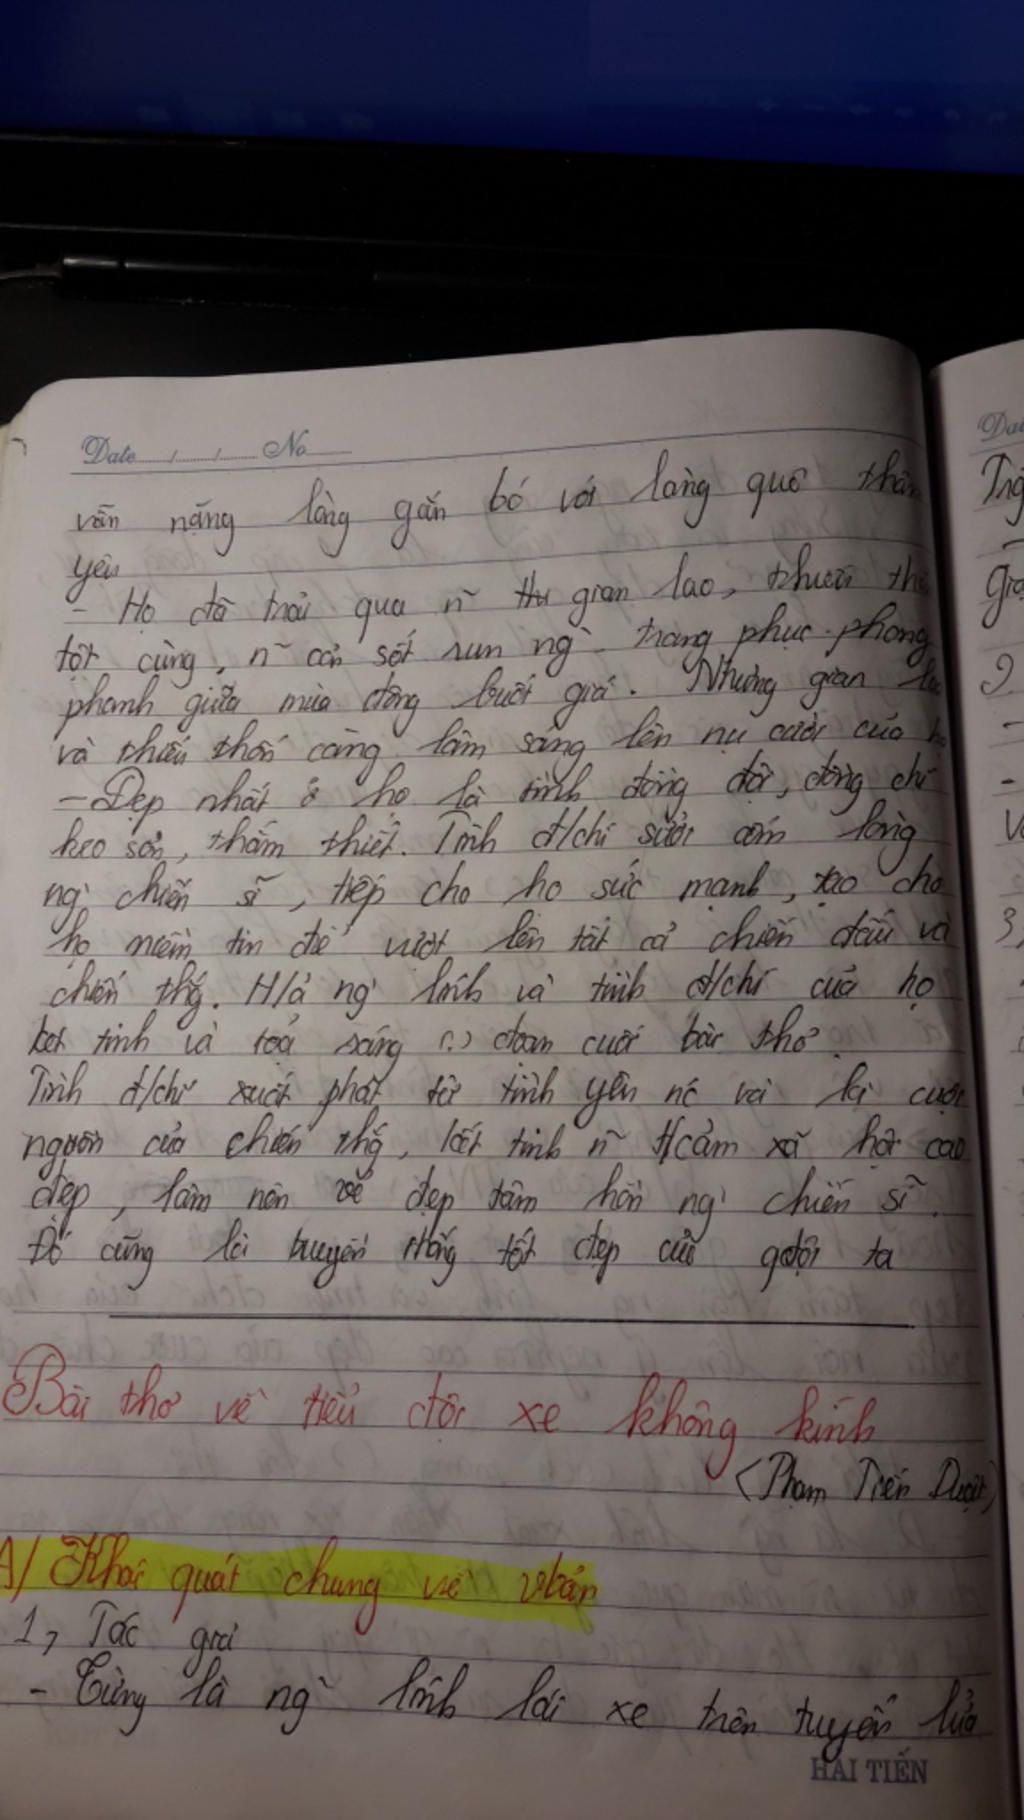 Date No
vẫn nặng lòng gắn bó với làng quê thân
yêu
- Họ đã trải qua n~ thử gian lao, thiếu thố
tột cùng, n~ cơn sốt run ng` trang phục phong
phanh giữa mùa đông buốt giá. Nhưng gian la
và thiếu thốn càng làm sáng lên nụ cười của họ
- Đẹp nhất ở họ là tình đồng đội, đồng chí
keo sơn, thắm thiết. Tình đ/chí sưởi ấm lòng
ng` chiến sĩ, tiếp cho họ sức mạnh, tạo cho
họ niềm tin để vượt lên tất cả chiến đấu và
chiến thg. H/ả ng` lính và tình đ/chí của họ
kết tinh và toả sáng (.) đoạn cuối bài thơ
Tình đ/chí xuất phát từ tình yêu nc và là cuội
nguồn của chiến thg, kết tinh n~ t/cảm xã hội cao
đẹp, làm nên vẻ đẹp tâm hồn ng` chiến sĩ.
Đó cũng là truyền thống tốt đẹp của qđội ta
Bài thơ về tiểu đội xe không kính
(Phạm Tiến Duật)
A/ Khái quát chung về vbản
1, Tác giả
- Từng là ng` lính lái xe trên tuyến lửa
HẢI TIẾN